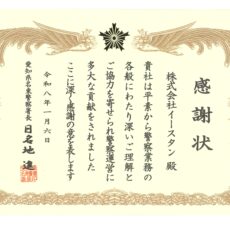 感謝状
株式会社イースタン 殿
貴社は平素から警察業務の
各般にわたり深いご理解と
ご協力を寄せられ警察運営に
多大な貢献をされました
ここに深く感謝の意を表します
令和八年一月六日
愛知県名東警察署長
日名地 進